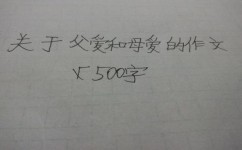 关于父爱和母爱的作文
500字